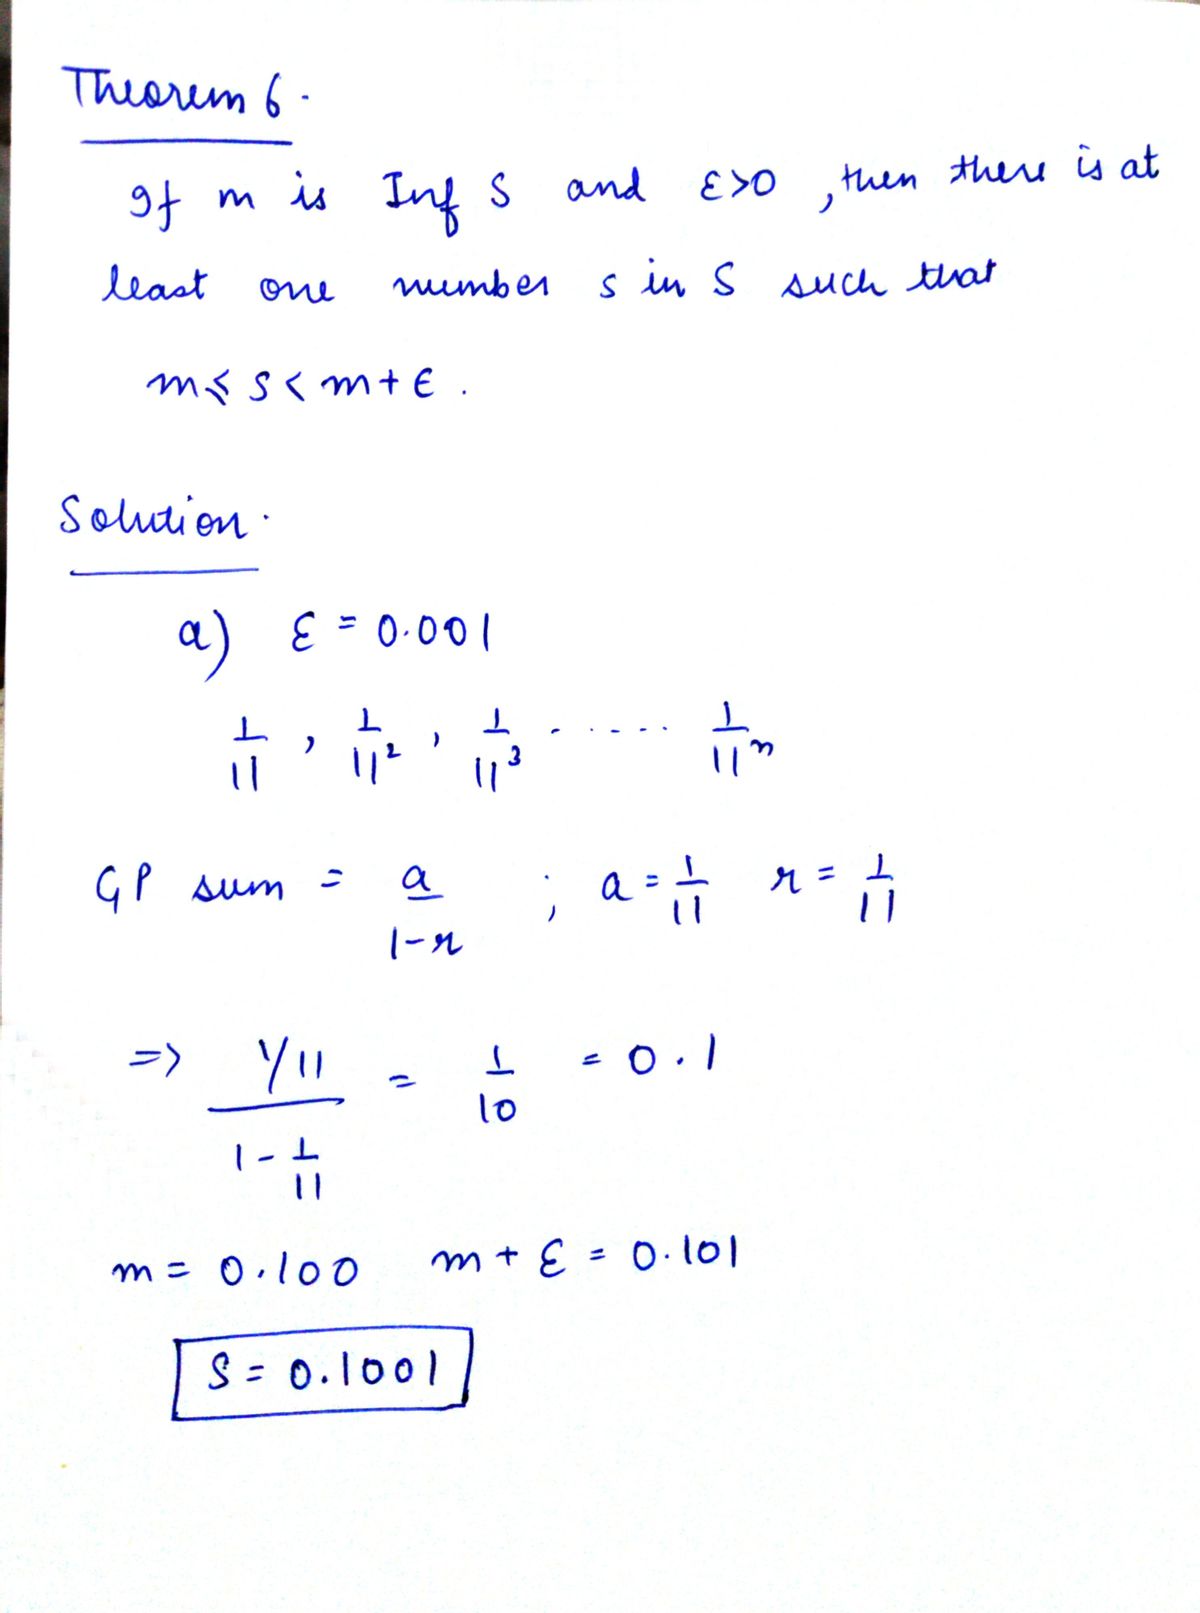 Theorem 6.
If m is Inf S and ε>0, then there is at
least one number s in S such that
m ≤ s < m + ε.
Solution.
a) ε = 0.001
1/11, 1/11², 1/11³ ..... 1/11ⁿ
GP sum = a/(1-r) ; a = 1/11 r = 1/11
=> (1/11)/(1 - 1/11) = 1/10 = 0.1
m = 0.100 m + ε = 0.101
S = 0.1001